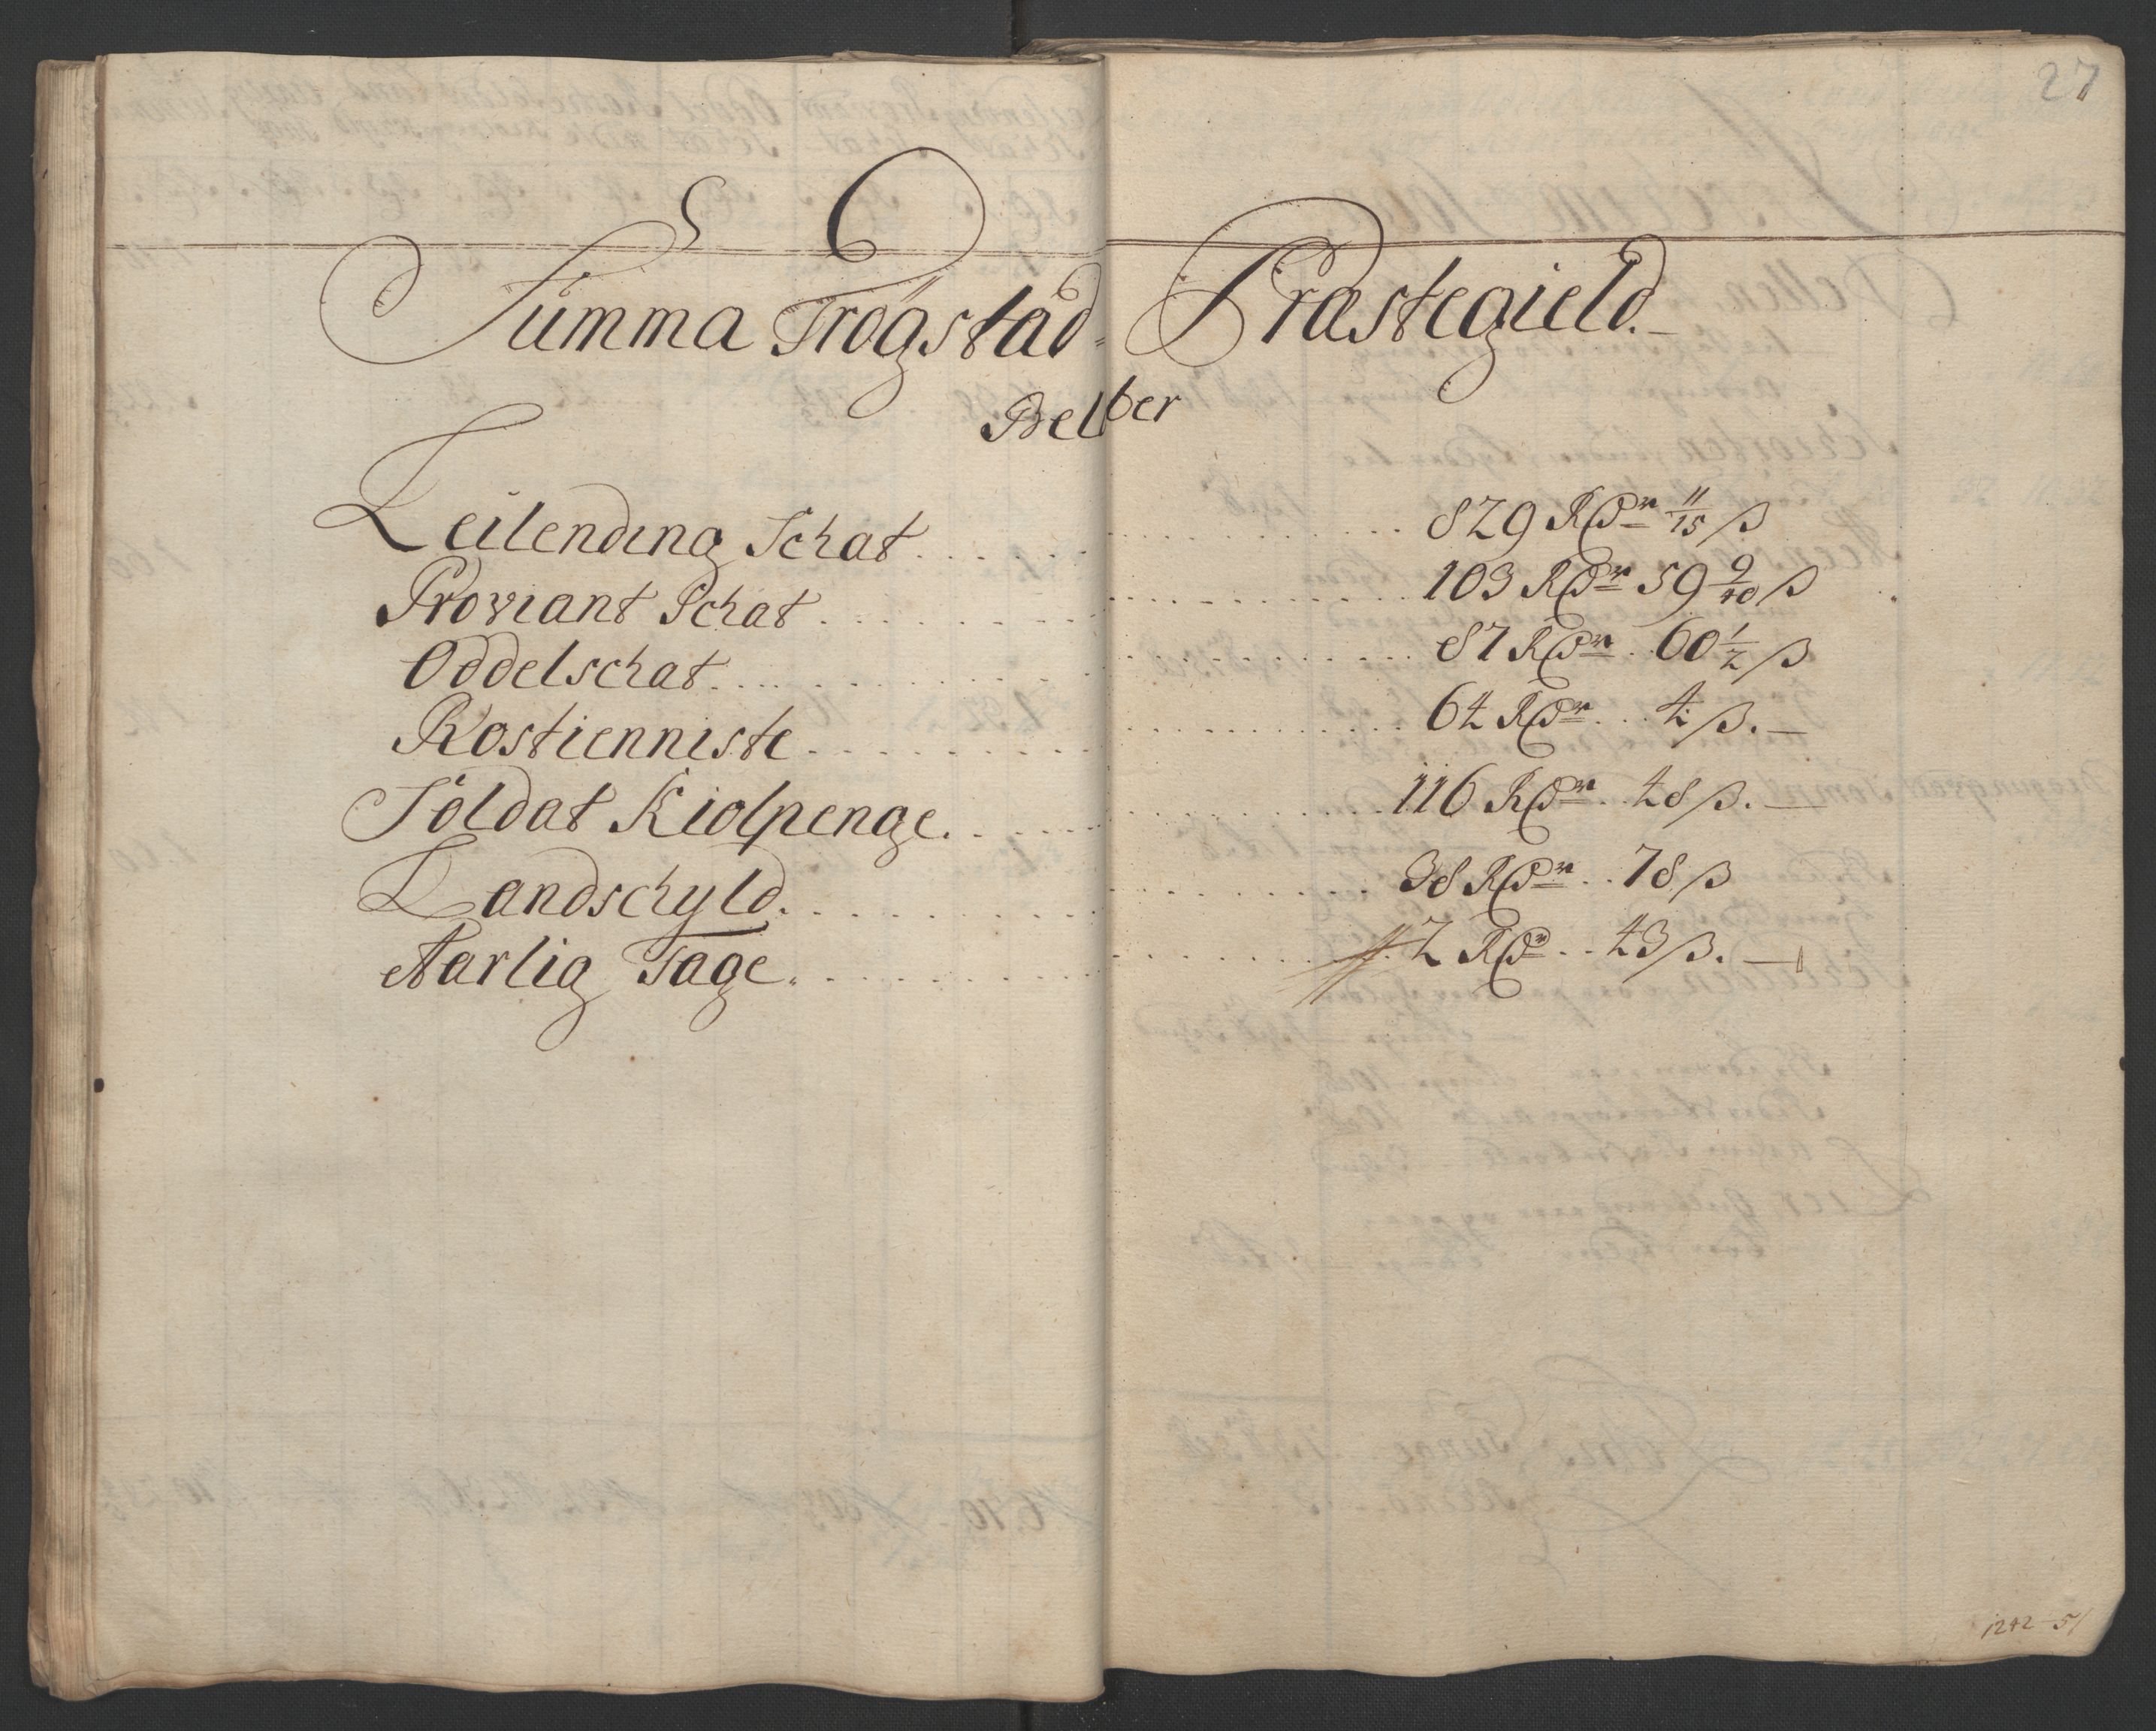 27
Summa Trögstad Præstegield.
Belber
Leilending Schat 829 Rdr 11/15 ß
Proviant Schat 103 Rdr 59 9/10 ß
Oddelschat 87 Rdr 60 1/2 ß
Rostienniste 64 Rdr 4 ß.
Soldat Kiolpenge. 116 Rdr 48 ß.
Landschyld. 38 Rdr 78 ß
Aarlig Tage. 2 Rdr 43 ß.
1242-51